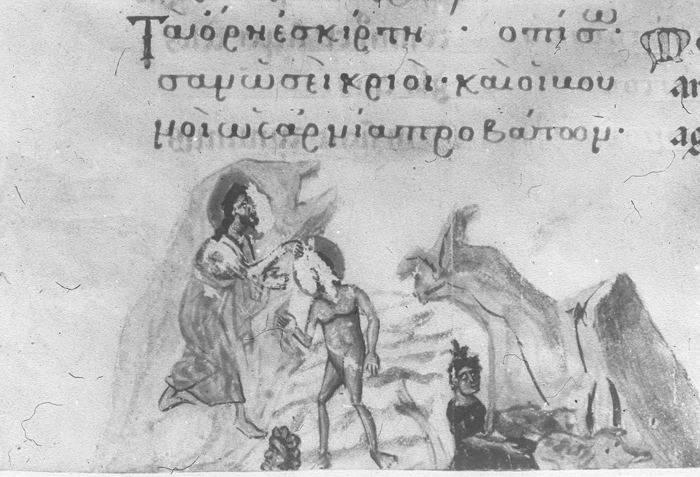 Τὰ ὄρη ἐσκίρτη · ὀπίσω·
σαν ὡσεὶ κριοί· καὶ οἱ βου
νοὶ ὡς ἀρνία προβάτων·